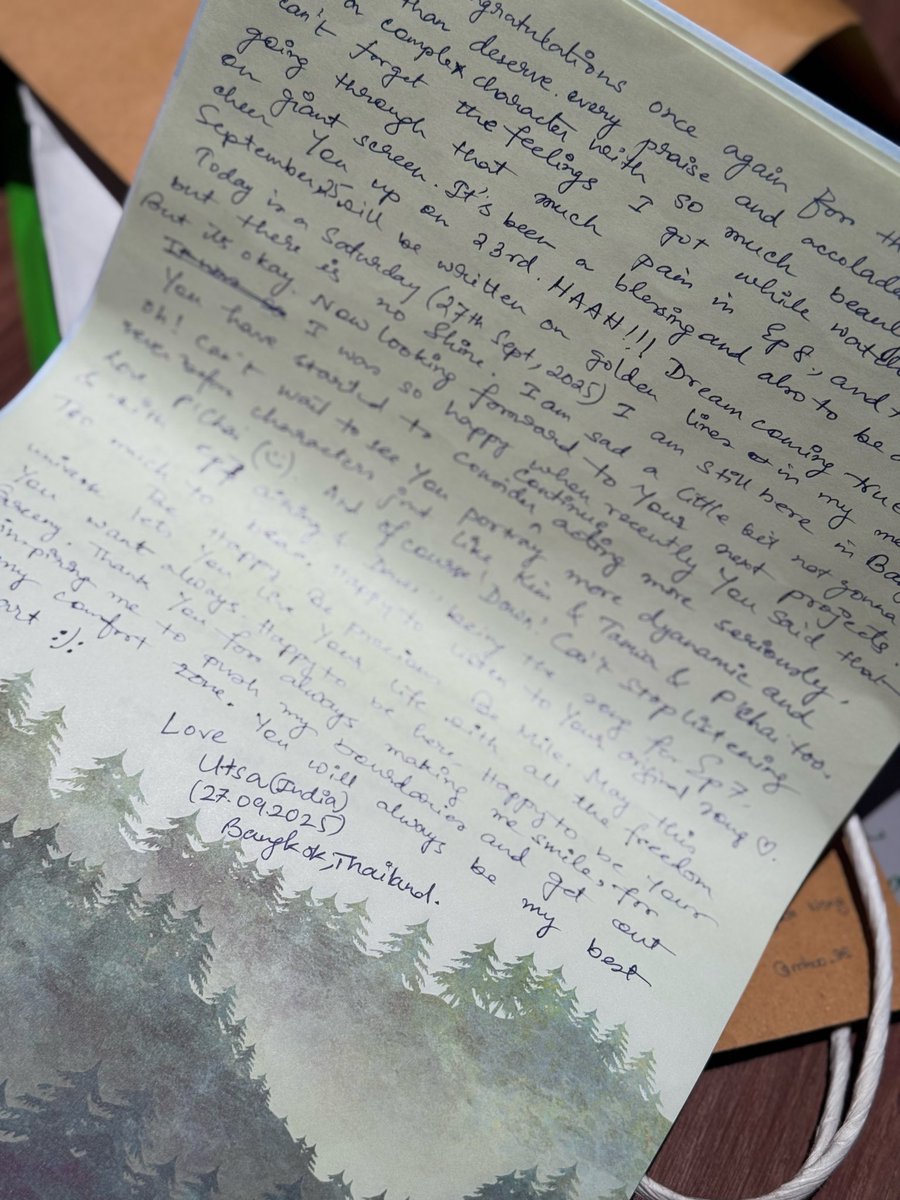 ngratulations once again For th
than deserve every praise and accolade
a complex character with so much beaut
can't forget the feelings I got while watch
going through that much pain in Ep 8, and t
on giant screen. It's been a blessing and also to be a
cheer You up on 23rd. HAAH!!! Dream coming true
September 25 will be written on golden lines in my me
Today is a Saturday (27th Sept, 2025) I am still here in Ba
but there is no Shine. I am sad a little bit not gonna
But its okay. Now looking forward to Your next projects.
I was so happy when recently You said that
You have started to consider acting more seriously,
oh! Can't wait to see You portray more dyanamic and
characters just like Kim & Tanin & P'Chai too.
love P'Chai (☺) And of course! Down! Can't stop listening
with Ep7 airing & Down being the song for Ep 7.
Too much to bear. Happy to listen to Your original song ♡.
Be Happy. Be precious. Be Mile. May this
universe lets You live Your life with all the freedom
You want always. Happy to be here. Happy to be Your
Thank You for always making me smile, for
me to push my boundaries and get out
my comfort zone. You will always be my best
art :):
Love
Utsa (India)
(27.09.2025)
Bangkok, Thailand.